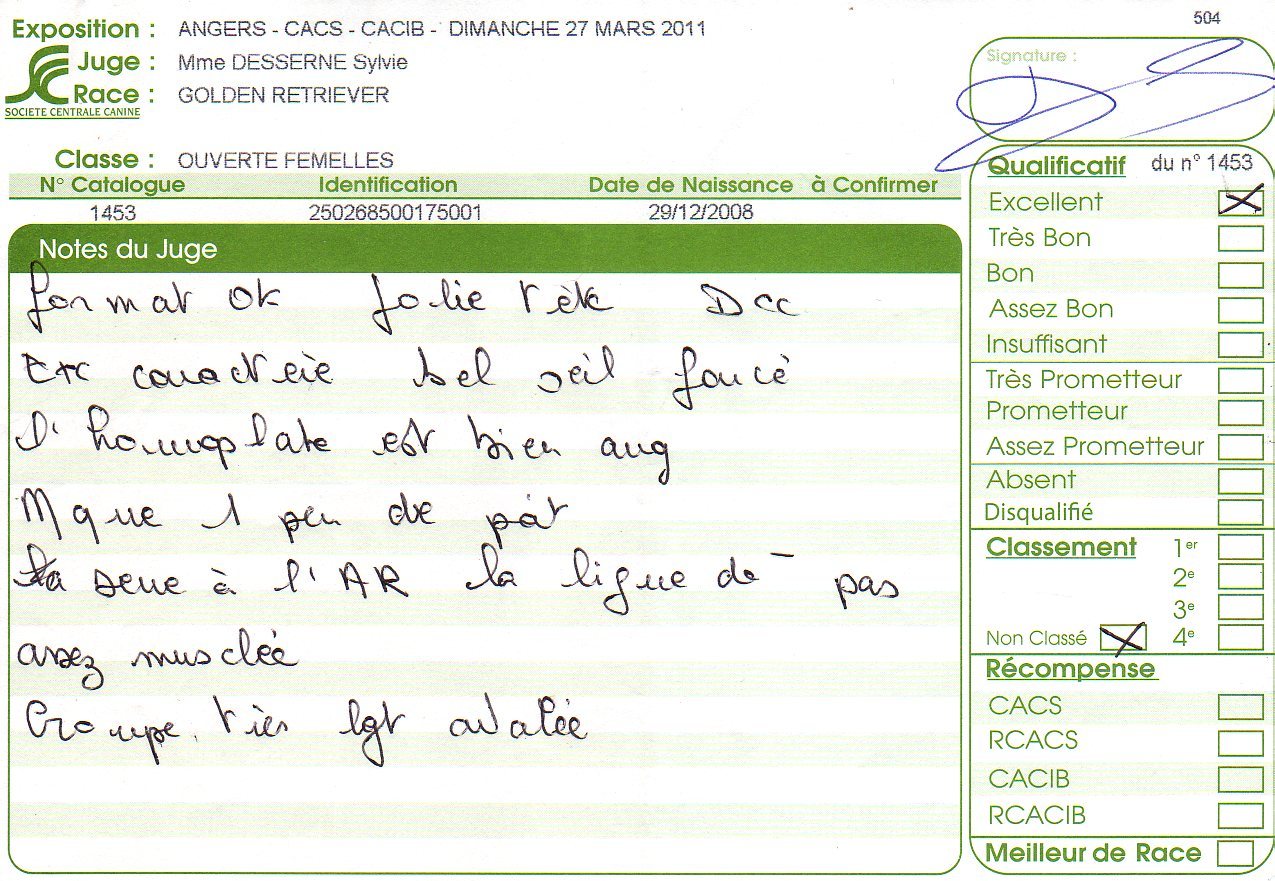 504
Exposition : ANGERS - CACS - CACIB - DIMANCHE 27 MARS 2011
Juge : Mme DESSERNE Sylvie
Race : GOLDEN RETRIEVER
SOCIETE CENTRALE CANINE
Classe : OUVERTE FEMELLES
N° Catalogue Identification Date de Naissance à Confirmer
1453 250268500175001 29/12/2008
Notes du Juge
format ok Jolie tête Dcc
Exc caractère bel oeil foncé
l'homoplate est bien ang
Mque 1 peu de poit
à l'AR la ligne de pas
assez musclée
Croupe très lgt avalée
Signature :
Qualificatif du n° 1453
Excellent
Très Bon
Bon
Assez Bon
Insuffisant
Très Prometteur
Prometteur
Assez Prometteur
Absent
Disqualifié
Classement 1er
2e
3e
Non Classé 4e
Récompense
CACS
RCACS
CACIB
RCACIB
Meilleur de Race